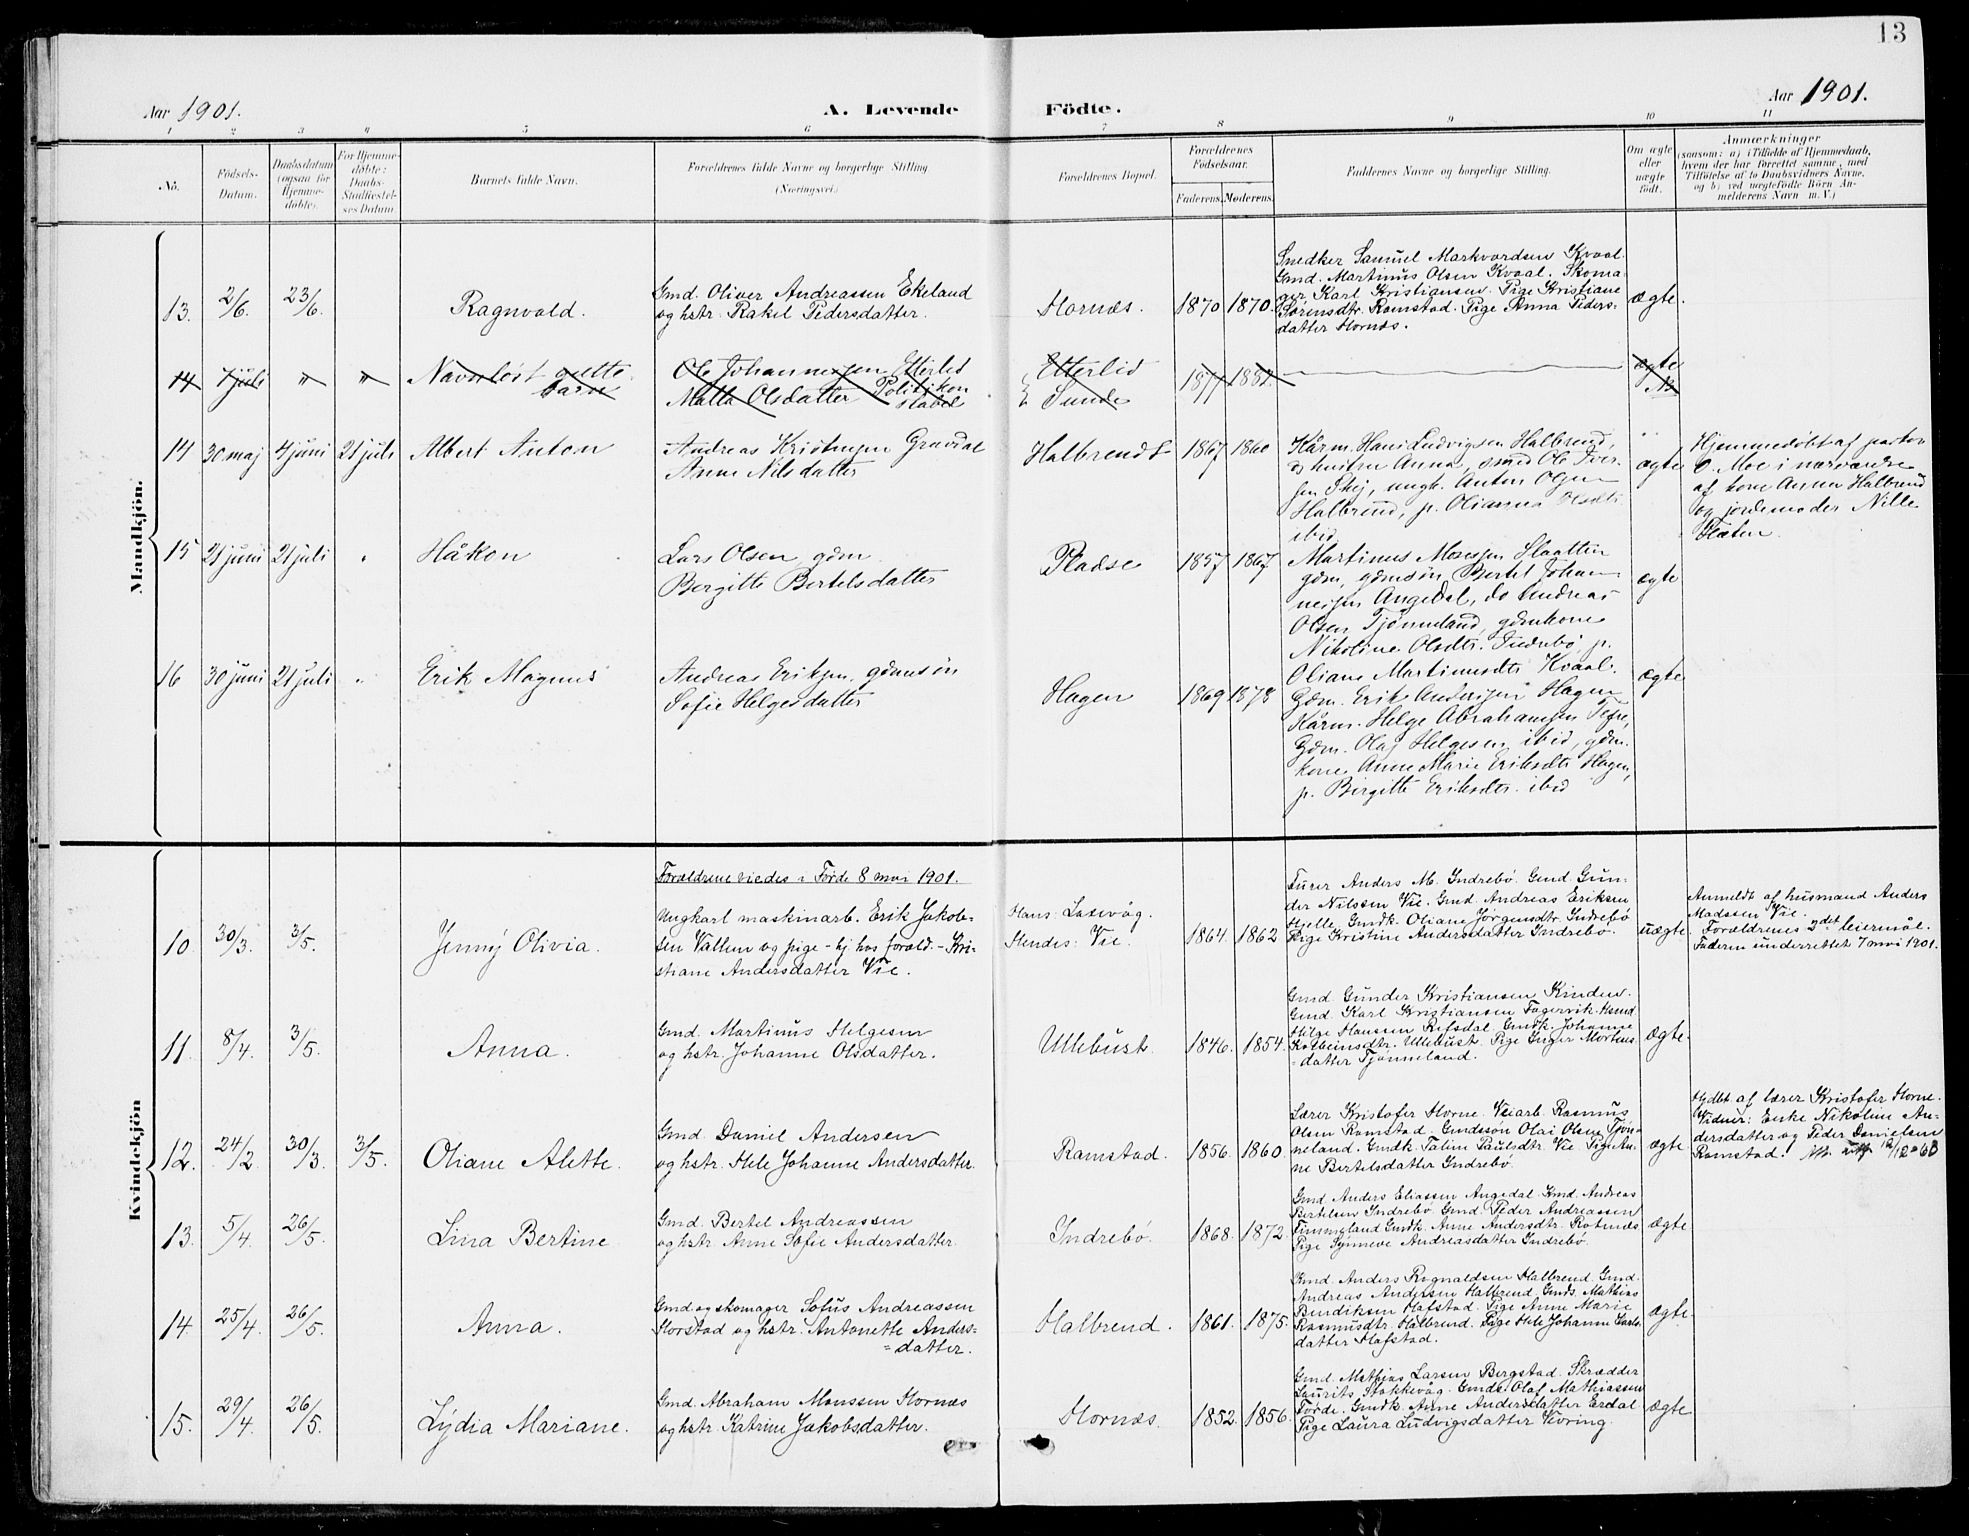 13
Aar 1901.
A. Levende Födte.
Aar 1901.
1 2 3 4 5 6 7 8 9 10 11
No.
Födsels-Datum.
Daabsdatum (ogsaa for Hjemme-döbte).
For Hjemme-döbte: Daabs-Stadfæstel-ses Datum
Barnets fulde Navn.
Forældrenes fulde Navne og borgerlige Stilling
(Næringsvei.)
Forældrenes Bopæl.
Forældrenes Födselsaar.
Faderens. Moderens.
Faddernes Navne og borgerlige Stilling.
Om ægte eller uægte födt.
Anmærkninger
(saasom: a) i Tilfælde af Hjemmedaab,
hvem der har forrettet samme, med
Tilföielse af to Daabsvidners Navne,
og b) ved uægtefödte Börn An-
melderens Navn m. V.)
Mandkjön.
13. 2/6. 23/6. Ragnvald.
Gmd. Oliver Andreassen Ekeland
og hstr. Rakel Pedersdatter.
Hornæs. 1870 1870.
Snedker Samuel Markvardsen Kvaal.
Gmd. Martinus Olsen Kvaal. Skoma-
ger Karl Kristiansen. Pige Kristiane
Sörensdtr. Ramstad. Pige Anna Peders-
datter Hornæs.
ægte.
14 7 juli " " Navnløst
barn
Ole Johannessen Etterlid
Malla Olsdatter Politikon
stabel
Etterlid
Sunde
1877 1881
ægte
14 30 maj 4 juni 21 juli Albert Anton
Andreas Gravdal
Anne Nilsdatter
Halbrendt 1867 1860
Kårm. Hans Ludvigsen Halbrend,
Anna, smed Ole Iver-
sen ungk. Anton Olsen
Halbrend, p. Olianna
ibid
ægte
Hjemmedøbt af pastor
O. Moe i nærværelse
af kone Anna Halbrend
og jordemoder Nille
Flaten.
15 21 juni 21 juli " Håkon
Lars Olsen, gdm
Bergitte Bertelsdatter
Pladse 1857 1867
Martinus Monssen Slaatten
gdm, gdmsøn Bertel Johan-
nessen Angedal, do Andreas
Olsen Tjønneland, gdmkone
Nikoline Olsdtr. Indrebø, p.
Oliane Martinusdtr Kvaal.
ægte
16 30 juni 21 juli " Erik Magnus
Andreas Eriksen, gdmsøn
Sofie Helgesdatter
Hagen 1869 1878
Gdm. Erik Hagen
Kårm. Helge Abrahamsen Tefre,
Gdm. Olaf Helgesen ibid, gdm.
kone Anne Marie Eriksdtr Hagen,
p. Birgitte Eriksdtr. ibid
ægte
Kvindekjön
Forældrene viedes i Förde 8 mai 1901.
10 30/3. 3/5. Jenny Olivia.
Ungkarl maskinarb. Erik Jakob-
sen Vallem og pige - hj. hos foræld. - Kri-
stiane Andersdatter Vie.
Hans: Laxevåg.
Hendes: Vie.
1864. 1862
Furer Anders M. Indrebö. Gmd. Gun-
der Nilssen Vie. Gmd Andreas Eriksen
Hjelle. Gmdk. Oliane Jörgensdtr. Indrebö
Pige Kristine Andersdatter Indrebö.
uægte.
Anmeldt af husmand Anders
Madssen Vie.
Forældrenes 2det leiermål.
Faderen underrettet 7 mai 1901.
11. 8/4. 3/5. Anna.
Gmd. Martinus Helgesen
og hstr. Johanne Olsdatter.
Ullebust. 1846. 1854.
Gmd. Gunder Kristiansen Kinden.
Gmd. Karl Kristiansen Fagervik. Hsmd
Helge Hanssen Refsdal. Gmdk. Johanne
Kolbeinsdtr. Ullebust. Pige Inger Mortens-
datter Tjönneland.
ægte.
12. 24/2. 30/3. 3/5. Oliane Alette.
Gmd. Daniel Andersen
og hstr. Hele Johanne Andersdatter.
Ramstad. 1856. 1860
Lærer Kristofer Horne. Veiarb. Rasmus
Olsen Ramstad. Gmdssön Olai Olsen Tjön-
neland. Gmdk. Taline Paulsdtr. Vie. Pige An-
ne Bertelsdatter Indrebö.
ægte.
Hjdbt. af lærer Kristofer Horne.
Vidner: Enke Nikoline An-
dersdatter og Peder Danielsen
Ramstad. 12/12-63
13. 5/4. 26/5. Lina Bertine
Gmd. Bertel Andreassen
og hstr. Anne Sofie Andersdatter.
Indrebö. 1868. 1872.
Gmd Anders Eliassen Angedal. Gmd. Andreas
Bertelsen Indrebö. Gmd. Peder Andreassen
Timmeland. Gmdk. Anne Andersdtr. Rotnæs
Pige Synneve Andreasdatter Indrebö.
ægte
14. 25/4. 26/5. Anna.
Gmd. og skomager Sofus Andreassen
Horstad og hstr. Antonette Anders-
= datter.
Halbrend. 1861. 1875.
Gmd. Anders Rognaldsen Halbrend. Gmd.
Andreas Andersen Halbrend. Gmds. Mathias
Bendiksen Hafstad. Pige Anne Marie
Rasmusdtr. Halbrend. Pige Hele Johanne Lars-
datter Hafstad.
ægte.
15. 29/4. 26/5. Lydia Mariane.
Gmd. Abraham Monssen Hornæs
og hstr. Katrine Jakobsdatter.
Hornæs. 1852. 1856.
Gmd. Mathias Larsen Bergstad. Skrædder
Laurits Stokkevåg. Gmds. Olaf Mathiassen
Förde. Gmdk. Anne Andersdatter Erdal.
Pige Laura Ludvigsdatter Kvring.
ægte